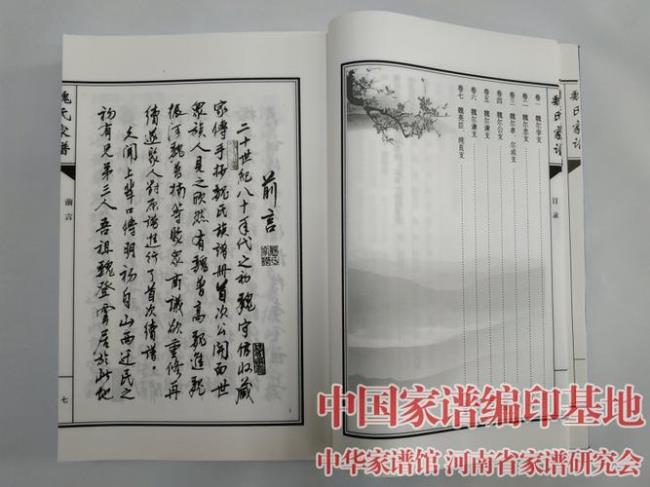 魏氏家譜
目录
卷一 魏尔学支
卷二 魏尔忠支
卷三 魏尔孝、尔成支
卷四 魏尔公支
卷五 魏尔谏支
卷六 魏尔谦支
卷七 魏英臣、纯良支
前言
二十世纪八十年代之初魏守信收藏
家传手抄魏氏族谱册首次公开面世
众族人见之欣然有魏普高魏进魏
振河魏普楠等数家商议欲重修再
续遂聚人对原谱进行了首次续谱
又闻上辈口传明初自山西迁民之
初有兄弟三人吾祖魏登云居於此地
魏氏家譜
前言
七
中国家谱编印基地
中华家谱馆 河南省家谱研究会